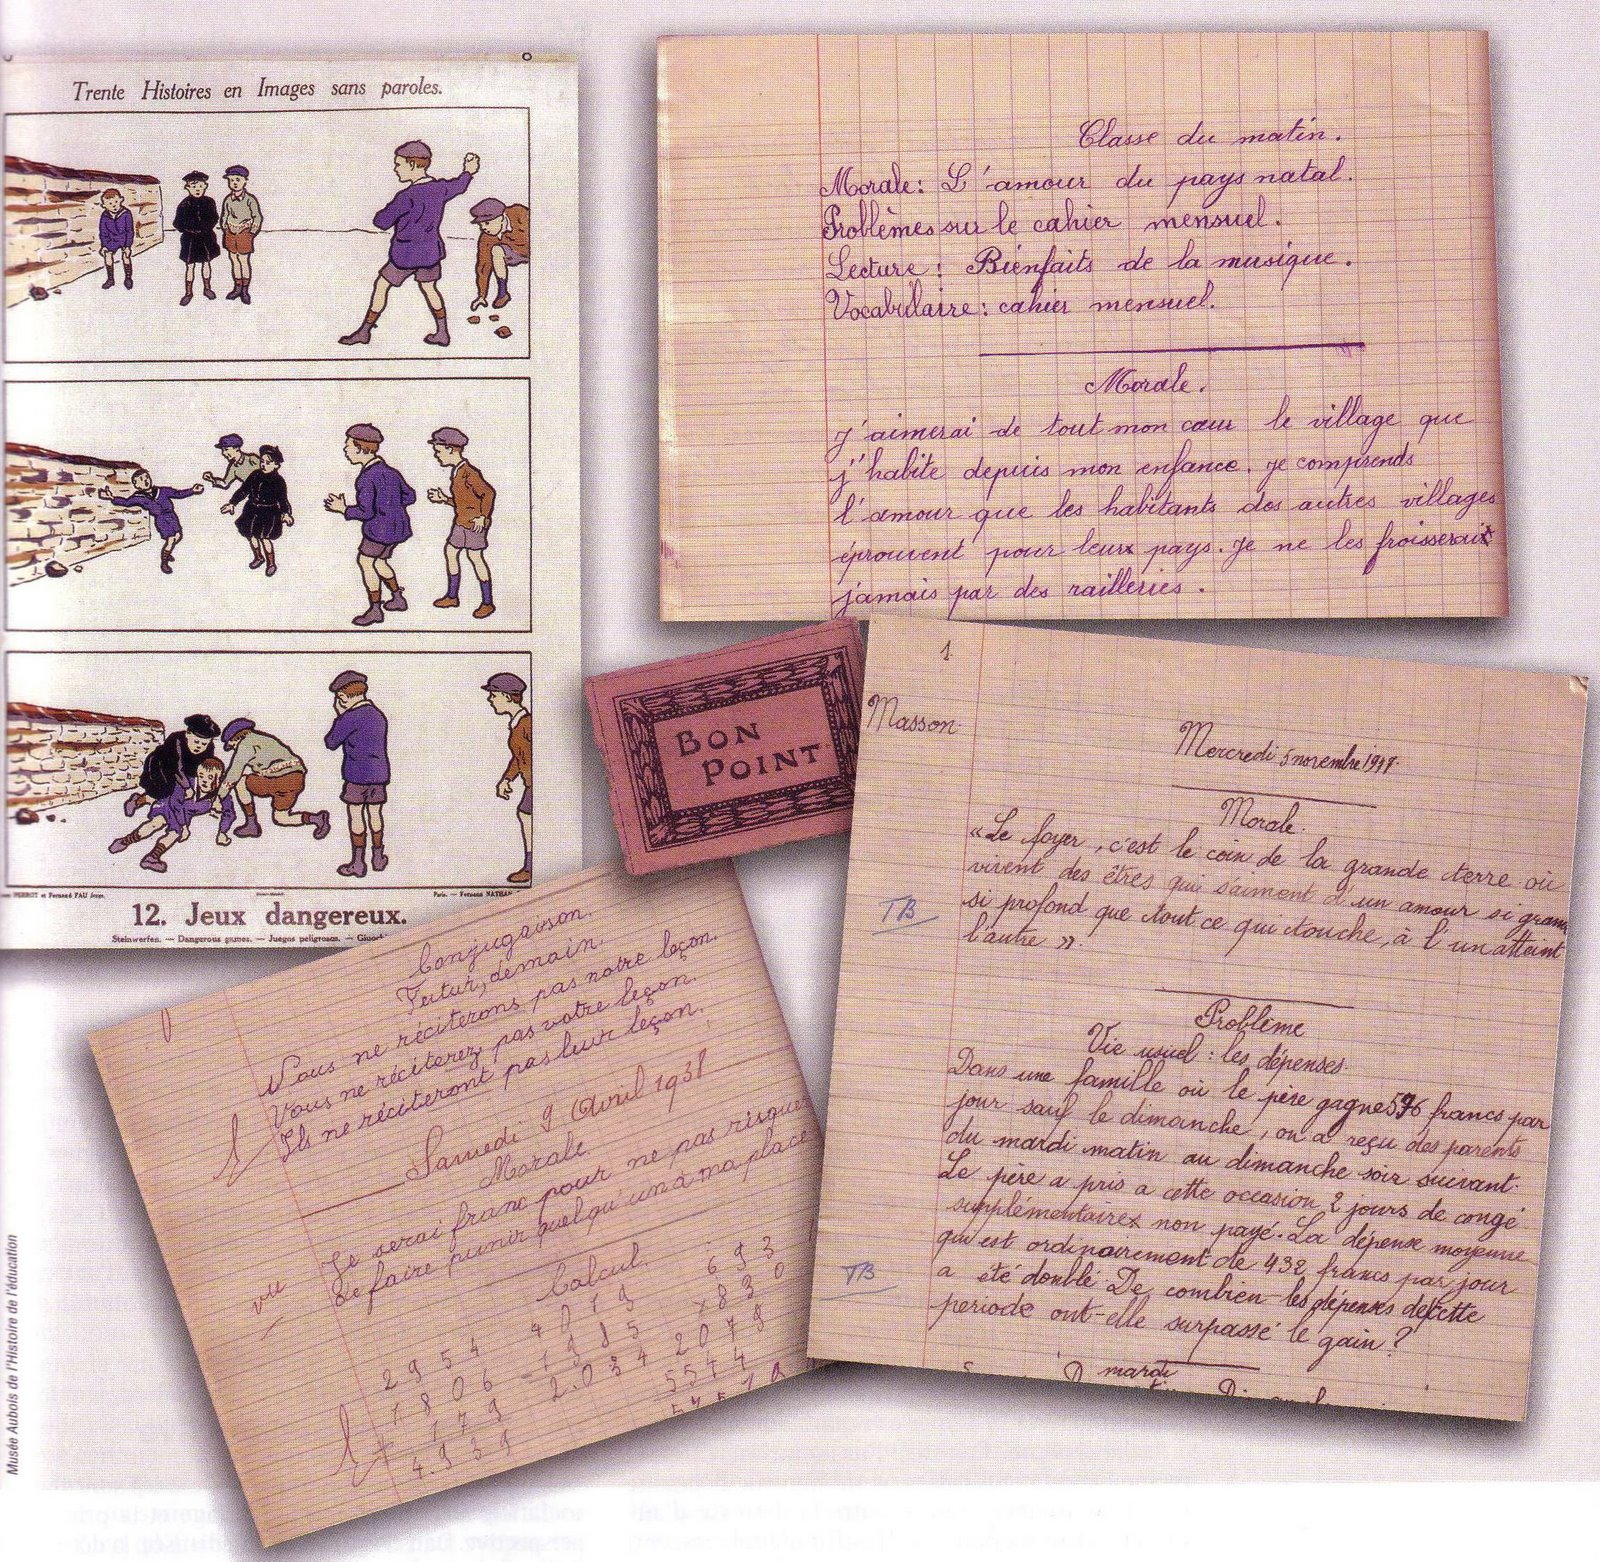 Trente Histoires en Images sans paroles.
PERROT et Fernand FAU
Paris. — Fernand NATHAN
12. Jeux dangereux.
Steinwerfen. — Dangerous games. — Juegos peligrosos. —
Classe du matin.
Morale: L'amour du pays natal.
Problèmes sur le cahier mensuel.
Lecture: Bienfaits de la musique.
Vocabulaire: cahier mensuel.
Morale.
J'aimerai de tout mon cœur le village que
j'habite depuis mon enfance. Je comprends
l'amour que les habitants des autres villages
éprouvent pour leur pays. Je ne les froisserai
jamais par des railleries.
BON
POINT
1
Masson
Mercredi 5 novembre 1947
Morale.
«Le foyer, c'est le coin de la grande terre où
vivent des êtres qui s'aiment d'un amour si grand
TB
si profond que tout ce qui touche, à l'un atteint
l'autre».
Problème
Vie usuel: les dépenses.
Dans une famille où le père gagne 576 francs par
jour sauf le dimanche, on a reçu des parents
du mardi matin au dimanche soir suivant.
Le père a pris a cette occasion 2 jours de congé
supplémentaires non payé. La dépense moyenne
qui est ordinairement de 432 francs par jour
TB
a été doublé De combien les dépenses de cette
periode ont-elle surpassé le gain?
mardi
Conjugaison
Futur, demain.
Nous ne réciterons pas notre leçon.
Vous ne réciterez pas votre leçon.
Ils ne réciteront pas leur leçon.
Samedi 9 Avril 1938
Morale
Je serai franc pour ne pas risquer
de faire punir quelqu'un à ma place
vu
Calcul.
2954 4019 693
1806 1985 ×830
179 2.034 2079
4.939 5544
Musée Aubois de l'Histoire de l'éducation